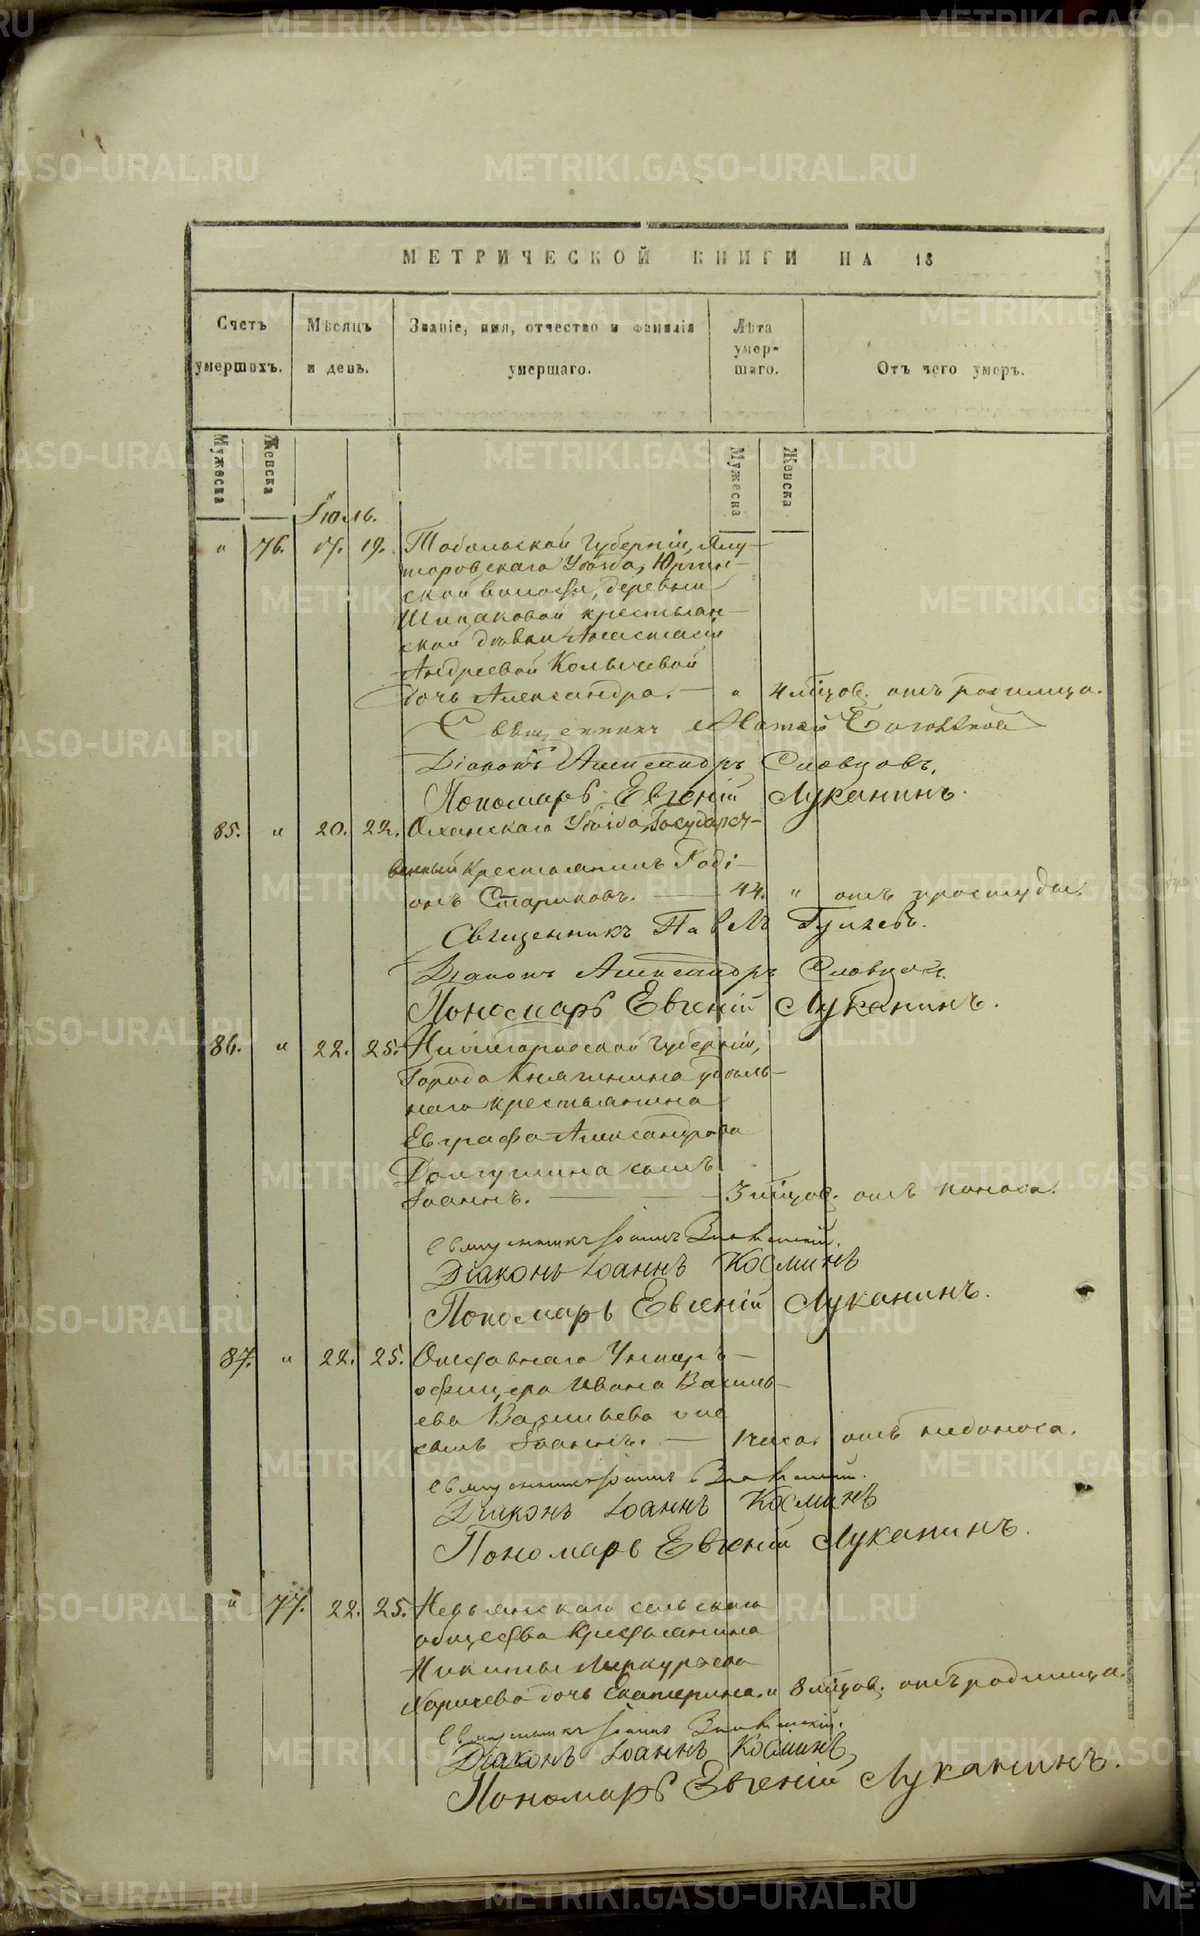 МЕТРИЧЕСКОЙ КНИГИ НА 18
Счетъ умершихъ.
Мѣсяцъ и день.
Званіе, имя, отчество и фамилія умершаго.
Лѣта умершаго.
Отъ чего умеръ.
Мужеска Женска Мужеска Женска
Іюль.
" 76. 17. 19. Тобольской Губерніи, Ялу-
торовскаго Уѣзда, Юргин-
ской волости, деревни
Шипаковой крестьян-
ской дѣвки Анастасіи
Андреевой Колычевой
дочь Александра. — " 4 мѣсцов. отъ родимца.
Священникъ
Діаконъ Александръ Словцовъ.
Пономарь Евгеній Луканинъ.
85. " 20. 22. Оханскаго Уѣзда, Государст-
венный крестьянинъ Роді-
онъ Стариковъ. — 44. " отъ простуды.
Священникъ Павелъ
Діаконъ Александръ Словцовъ.
Пономарь Евгеній Луканинъ.
86. " 22. 25. Нижегородской Губерніи,
Города Княгинина удѣль-
наго крестьянина
Евграфа Александрова
Долгушина сынъ
Іоаннъ. — 3 мѣсцов. отъ поноса.
Священникъ Іоаннъ
Діаконъ Іоаннъ Косминъ
Пономарь Евгеній Луканинъ.
87. " 22. 25. Отставнаго Унтеръ-
офицера Ивана Василь-
ева Васильева
сынъ Іоаннъ. — 1 часа. отъ недоноса.
Священникъ Іоаннъ
Діаконъ Іоаннъ Косминъ
Пономарь Евгеній Луканинъ.
" 77. 22. 25. Невьянскаго сельскаго
общества крестьянина
Никиты Меркурьева
дочь Екатерина. " 8 мѣсцов. отъ родимца.
Священникъ Іоаннъ
Діаконъ Іоаннъ Косминъ
Пономарь Евгеній Луканинъ.
METRIKI.GASO-URAL.RU